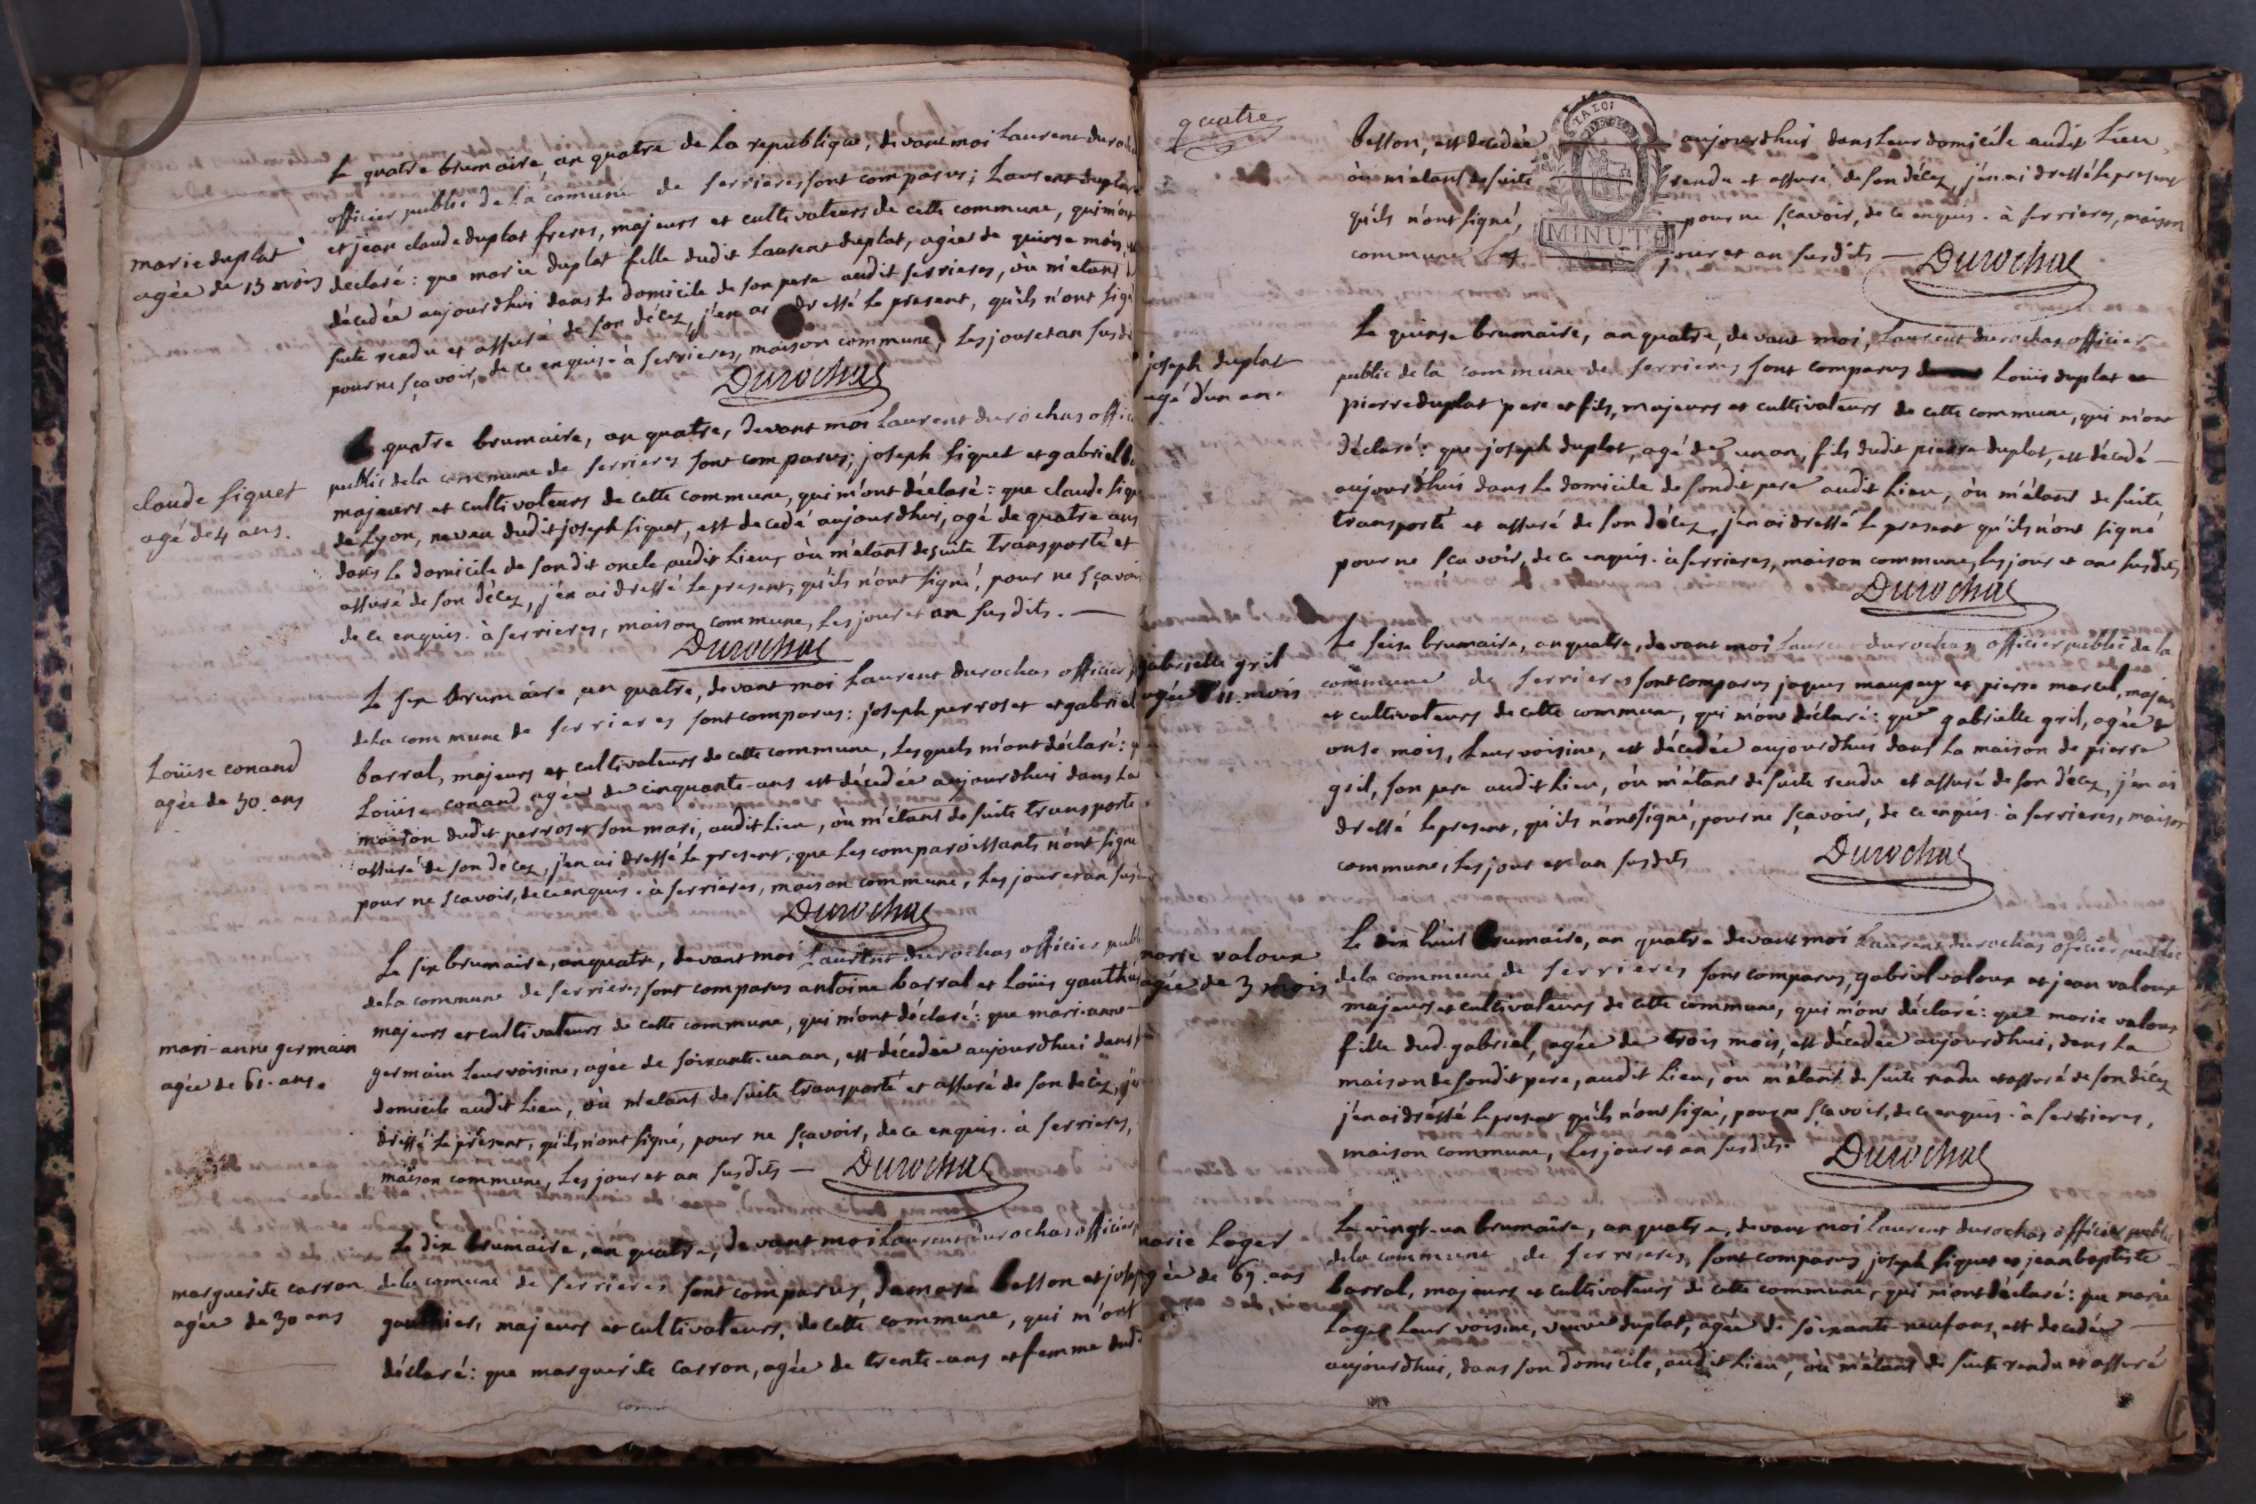 Le quatre brumaire an quatre de la republique, devant moi Laurent
officier public de la comune de ferrieres sont comparus; Laurent duplat
et jean claude duplat freres, majeurs et cultivateurs de cette commune, qui m'ont
marie duplat
agée de 15 mois
declaré: que marie duplat fille dudit Laurent duplat, agée de quinse mois,
décedée aujourdhui dans le domicile de son pere audit ferrieres, où m'etant
suite rendu et assuré de son décez, j'en ai dressé le present, qu'ils n'ont
pour ne sçavoir, de ce enquis. à ferrieres, maison commune, les jour et an
Durochas
quatre brumaire, an quatre, devant moi Laurent durochas
public de la commune de ferrieres sont comparus; joseph siquet et gabriel
claude siquet
agé de 4 ans.
majeurs et cultivateurs de cette commune, qui m'ont déclaré: que claude
de Lyon, neveu dudit joseph siquet, est decedé aujourdhui, agé de quatre ans
dans le domicile de sondit oncle audit Lieu, où m'etant de suite transporté et
assuré de son décez, j'en ai dressé le present, qu'ils n'ont signé, pour ne sçavoir
de ce enquis. à ferrieres, maison commune, les jour et an susdits. —
Durochas
Le six brumaire, an quatre, devant moi Laurent durochas officier
de la commune de ferrieres sont comparus: joseph perroset et gabriel
Loüise conand
agée de 50. ans
barral, majeurs et cultivateurs de cette commune, lesquels m'ont déclaré:
Loüise conand agée de cinquante-ans est décedée aujourdhui dans la
maison dudit perroset son mari, audit Lieu, où m'étant de suite transporté
assuré de son décez, j'en ai dressé le present, que les comparoissants n'ont signé
pour ne scavoir, de ce enquis. à ferrieres, maison commune, les jour et an
Durochas
Le six brumaire, an quatre, devant moi Laurent durochas officier
de la commune de ferrieres sont comparus antoine barral et Loüis
majeurs et cultivateurs de cette commune, qui m'ont déclaré: que mari-anne
mari-anne germain
agée de 61. ans.
germain leur voisine, agée de soixante-un an, est décedée aujourdhui dans
domicile audit Lieu, où m'etant de suite transporté et assuré de son décèz,
dressé le présent, qu'ils n'ont signé, pour ne sçavoir, de ce enquis. à ferrieres,
maison commune, les jour et an susdits — Durochas
Le dix brumaire, an quatre, devant moi Laurent durochas officier
marguerite carron
agée de 30 ans
de la comune de ferrieres sont comparus, damase besson et
gauthier, majeurs et cultivateurs, de cette commune, qui m'ont
déclaré: que marguerite carron, agée de trente-ans et femme
quatre
besson, est decedée aujourdhui dans leur domicile audit Lieu,
où m'etant de suite rendu et assuré de son décez, j'en ai dressé le present
qu'ils n'ont signé, pour ne sçavoir, de ce enquis. à ferrieres, maison
commune les jour et an susdits — Durochas
MINUTE
Le quinse brumaire, an quatre, devant moi, Laurent durochas officier
joseph duplat
agé d'un an.
public de la commune de ferrieres sont comparus Loüis duplat et
pierre duplat pere et fils, majeurs et cultivateurs de cette commune, qui m'ont
déclaré: que joseph duplat, agé de un an, fils dudit pierre duplat, est décedé —
aujourdhui dans le domicile de sondit pere audit Lieu, où m'étant de suite
transporté et assuré de son décez, j'en ai dressé le present qu'ils n'ont signé
pour ne sçavoir, de ce enquis. à ferrieres, maison commune, les jour et an susdits
Durochas
gabrielle gril
agée d'11. mois
Le seise brumaire, an quatre, devant moi Laurent durochas officier public de la
commune de ferrieres sont comparus jaques maupeuy et pierre marcel, majeurs
et cultivateurs de cette commune, qui m'ont déclaré: que gabrielle gril, agée de
onse mois, leur voisine, est décedée aujourdhui dans la maison de pierre
gril, son pere audit Lieu, où m'étant de suite rendu et assuré de son décez, j'en ai
dressé le present, qu'ils n'ont signé, pour ne sçavoir, de ce enquis. à ferrieres, maison
commune, les jour et an susdits Durochas
marie valoux
agée de 3 mois
Le dix huit brumaire, an quatre devant moi Laurent durochas officier public
de la commune de ferrieres sont comparus, gabriel valoux et jean valoux
majeurs et cultivateurs de cette commune, qui m'ont déclaré: que marie valoux
fille dud. gabriel, agée de trois mois, est décedée aujourdhui, dans la
maison de sondit pere, audit Lieu, où m'étant de suite rendu et assuré de son décez
j'en ai dréssé le present qu'ils n'ont signé, pour ne sçavoir, de ce enquis. à ferrieres,
maison commune, les jour et an susdits. Durochas
marie Loger
agée de 69. ans
Le vingt-un brumaire, an quatre, devant moi Laurent durochas officier public
de la commune, de ferrieres, sont comparus joseph siquet et jean baptiste
barral, majeurs et cultivateurs de cette commune, qui m'ont déclaré: que marie
Loger leur voisine, veuve duplat, agée de soixante-neuf ans, est decedée —
aujourdhui, dans son domicile, audit Lieu, où m'étant de suite rendu et assuré